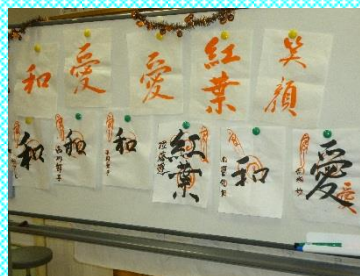 和
愛
愛
紅葉
笑顔
和
和
和
紅葉
和
愛
愛